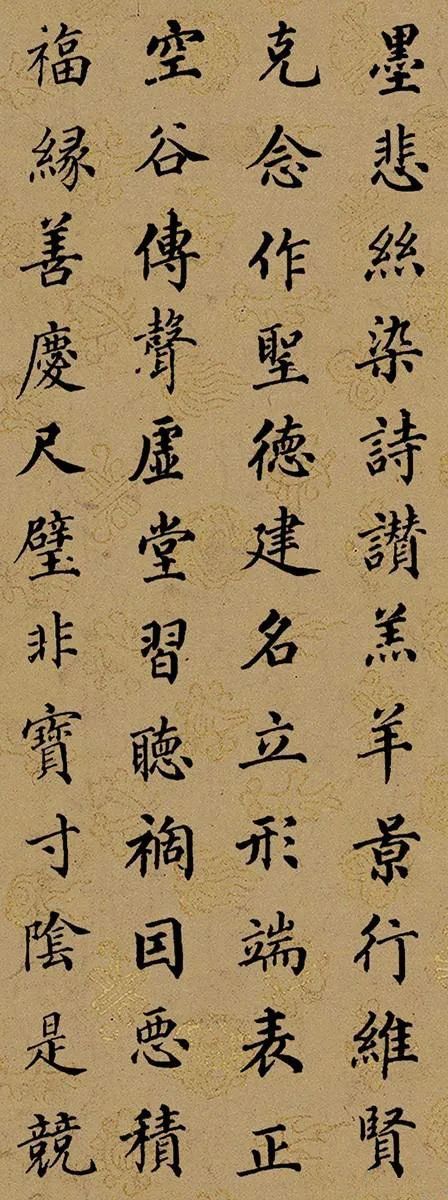 墨悲絲染詩讃羔羊景行維賢
克念作聖德建名立形端表正
空谷傳聲虛堂習聽禍因惡積
福緣善慶尺璧非寶寸陰是競